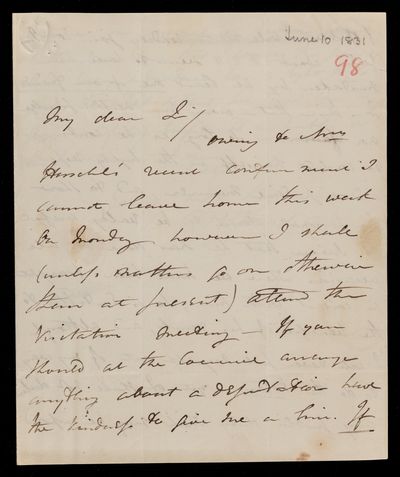 June 10 1831
98
My dear Sir/
owing to Mrs
Herschel's recent confinement I
cannot leave home this week
On Monday however I shall
(unless matters go on otherwise
than at present) attend the
Visitation Meeting – If you
should at the Council arrange
anything about a deputation have
the kindness to give me a line. If